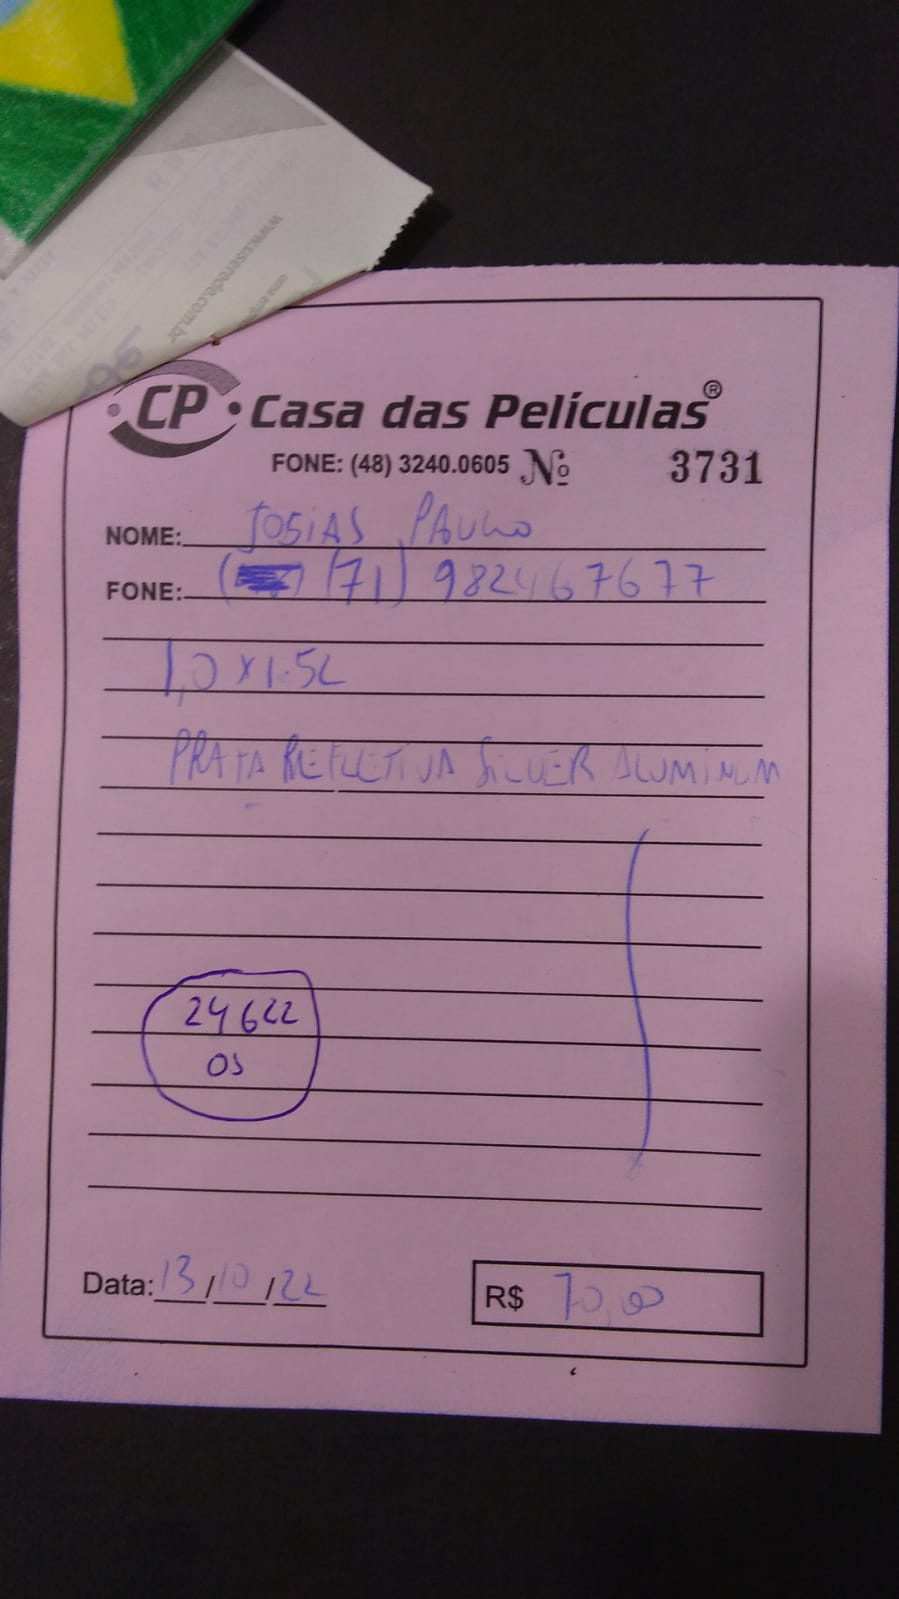 www.userede.com.br
CP Casa das Películas®
FONE: (48) 3240.0605 Nº 3731
NOME: JOSIAS PAULO
FONE: (71) 982467677
1,0 x 1.52
PRATA REFLETIVA SILVER ALUMINUM
24622
OS
Data: 13/10/22 R$ 70,00